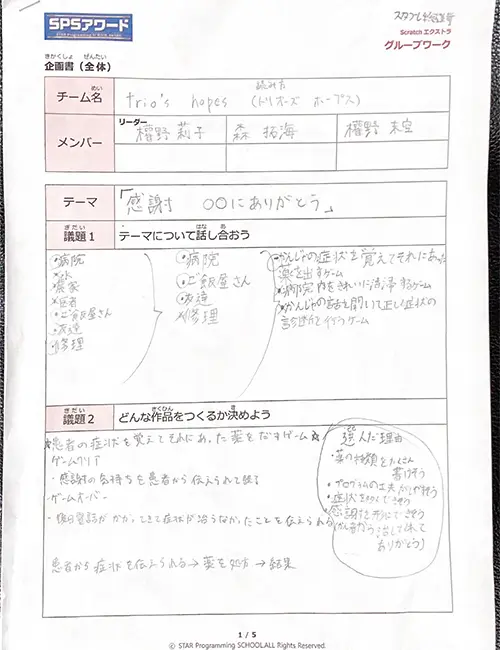 SPSアワード
STAR Programming SCHOOL
Scratch エクストラ
グループワーク
きかくしょ ぜんたい
企画書(全体)
めい
チーム名
読み方
trio's hopes (トリオーズ ホープス)
メンバー
リーダー
權野 莉子
森 拓海
權野 未空
テーマ
「感謝 ○○にありがとう」
ぎだい
議題1
はな あ
テーマについて話し合おう
・病院
・農家
・医者
・ご飯屋さん
・友達
・修理
・病院
・ご飯屋さん
・友達
・修理
・かんじゃの症状を覚えてそれにあった
薬を出すゲーム
・病院内をきれいに清掃するゲーム
・かんじゃの話を聞いて正しい症状の
診断を行うゲーム
ぎだい
議題2
さくひん き
どんな作品をつくるか決めよう
☆患者の症状を覚えてそれにあった薬を だすゲーム☆
ゲームクリア
・感謝の気持ちを患者から伝えられて終る
・ゲームオーバー
・後日電話がかかってきて症状が治らなかったことを伝えられる
患者から症状を伝えられる→薬を処方→結果
選んだ理由
・薬の種類をたくさん
書けそう
・プログラムの工夫がしがいがありそう
・感謝を形にできそう
ありがとう)
1 / 5
© STAR Programming SCHOOL ALL Rights Reserved.